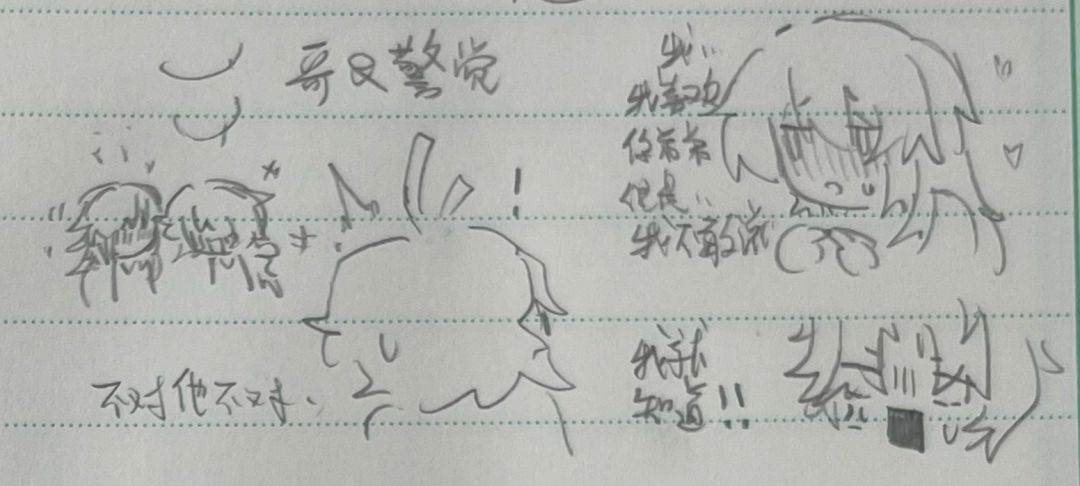 哥又警觉
我…
我喜欢
你弟弟
但是…
我不敢说
不对他不对、
我就
知道!!
!